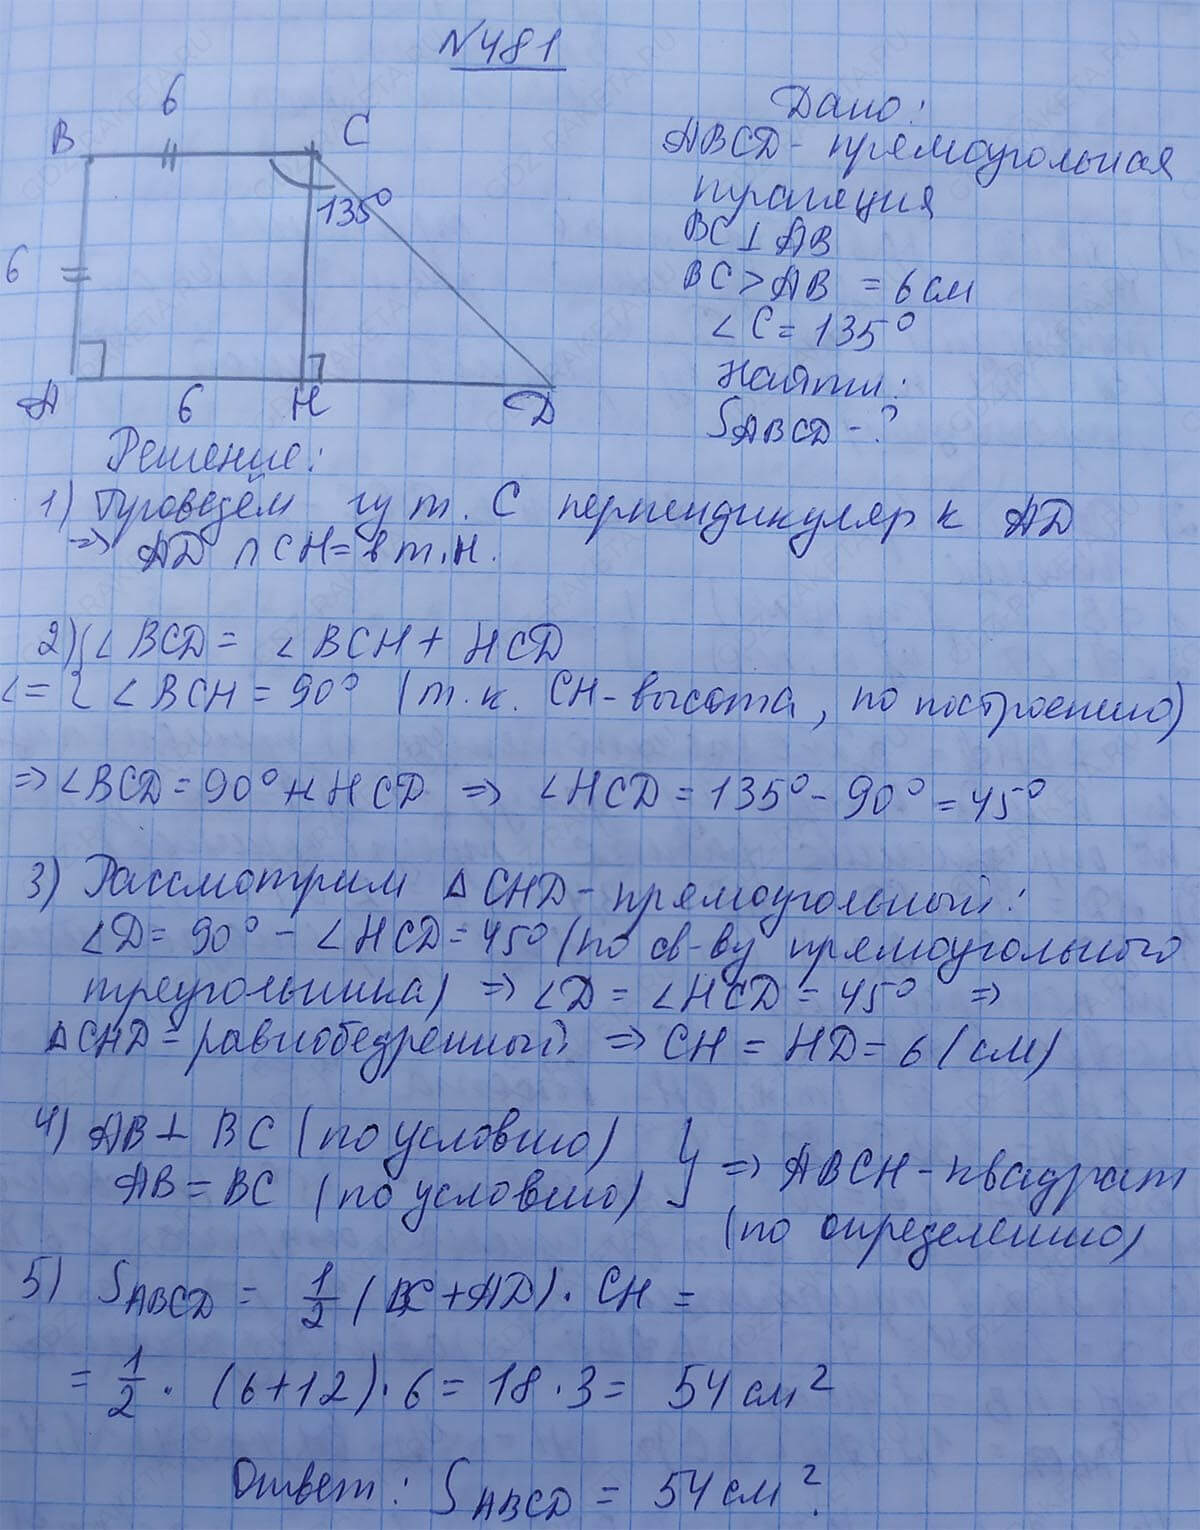 №481
6
B
C
135°
6
A
6
H
D
Дано:
ABCD - прямоугольная
трапеция
BC⊥AB
BC>AB = 6 см
∠C = 135°
Найти:
SABCD - ?
Решение:
1) Проведём из т. C перпендикуляр к AD
=> AD ∩ CH = в т. H.
2) { ∠BCD = ∠BCH + HCD
∠= { ∠BCH = 90° (т.к. CH - высота, по построению)
=> ∠BCD = 90° + HCD => ∠HCD = 135° - 90° = 45°
3) Рассмотрим △CHD - прямоугольный:
∠D = 90° - ∠HCD = 45° (по св-ву прямоугольного
треугольника) => ∠D = ∠HCD = 45° =>
△CHD - равнобедренный => CH = HD = 6 (см)
4) AB ⊥ BC (по условию)
AB = BC (по условию)
} => ABCH - квадрат
(по определению)
5) SABCD = 1/2 (BC + AD) · CH =
= 1/2 · (6+12) · 6 = 18 · 3 = 54 см²
Ответ: SABCD = 54 см².